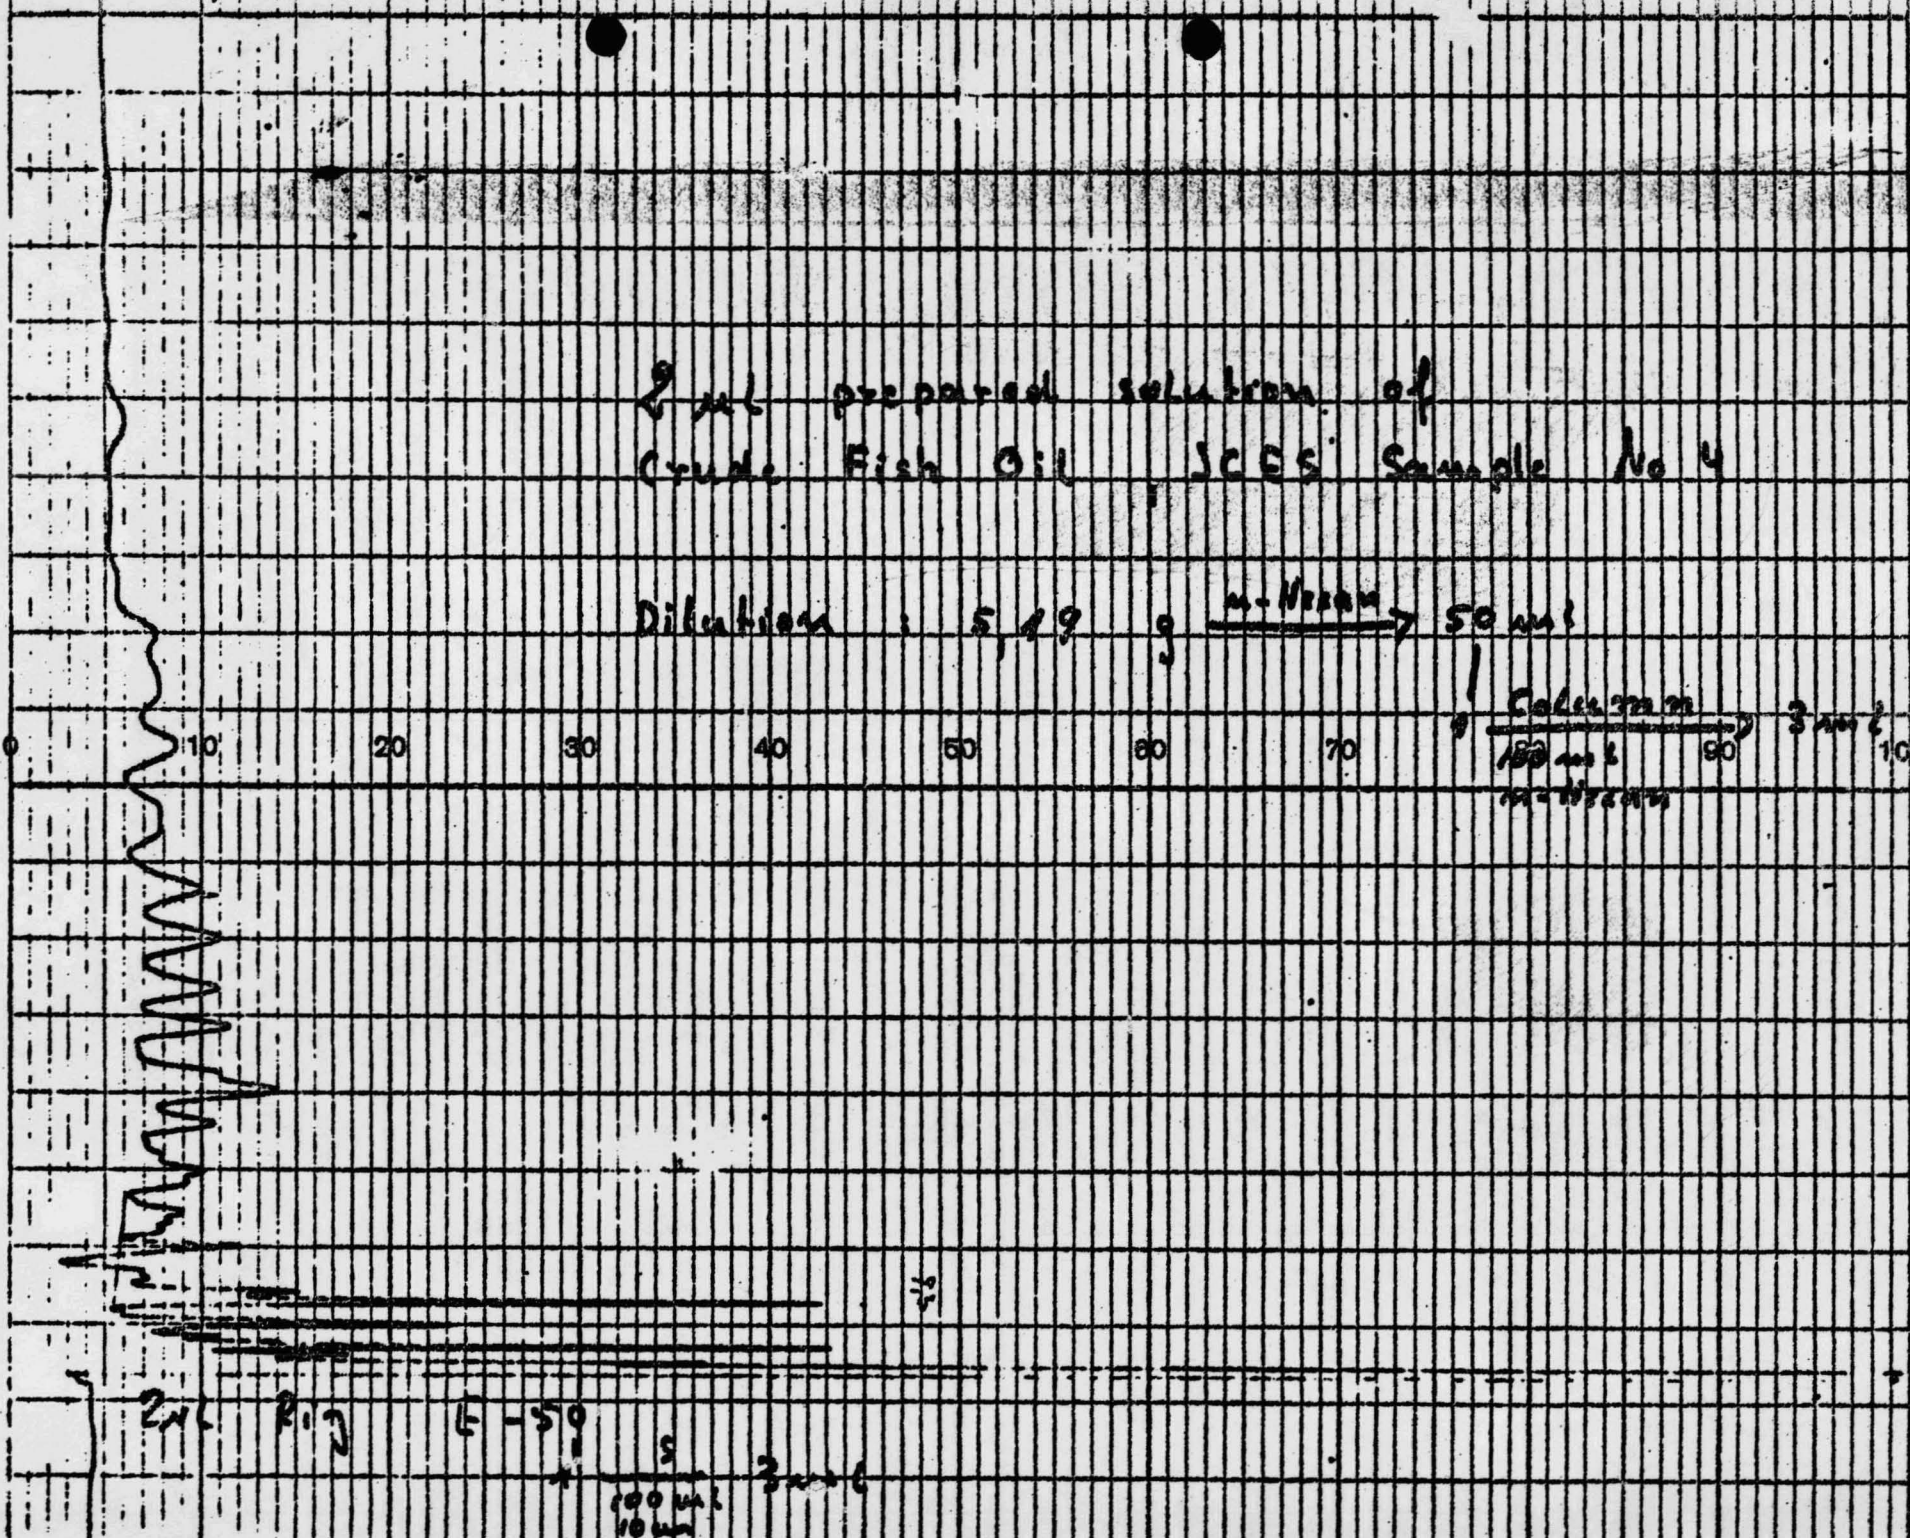 2 µl prepared solution of
Crude Fish Oil, ICES Sample No 4
Dilution : 5,19 g n-Hexan → 50 ml
1 Column → 3 ml
100 ml
n-Hexan
0 10 20 30 40 50 60 70 90 10
2µl E-50
5
100 ml 3 ml
10 cm